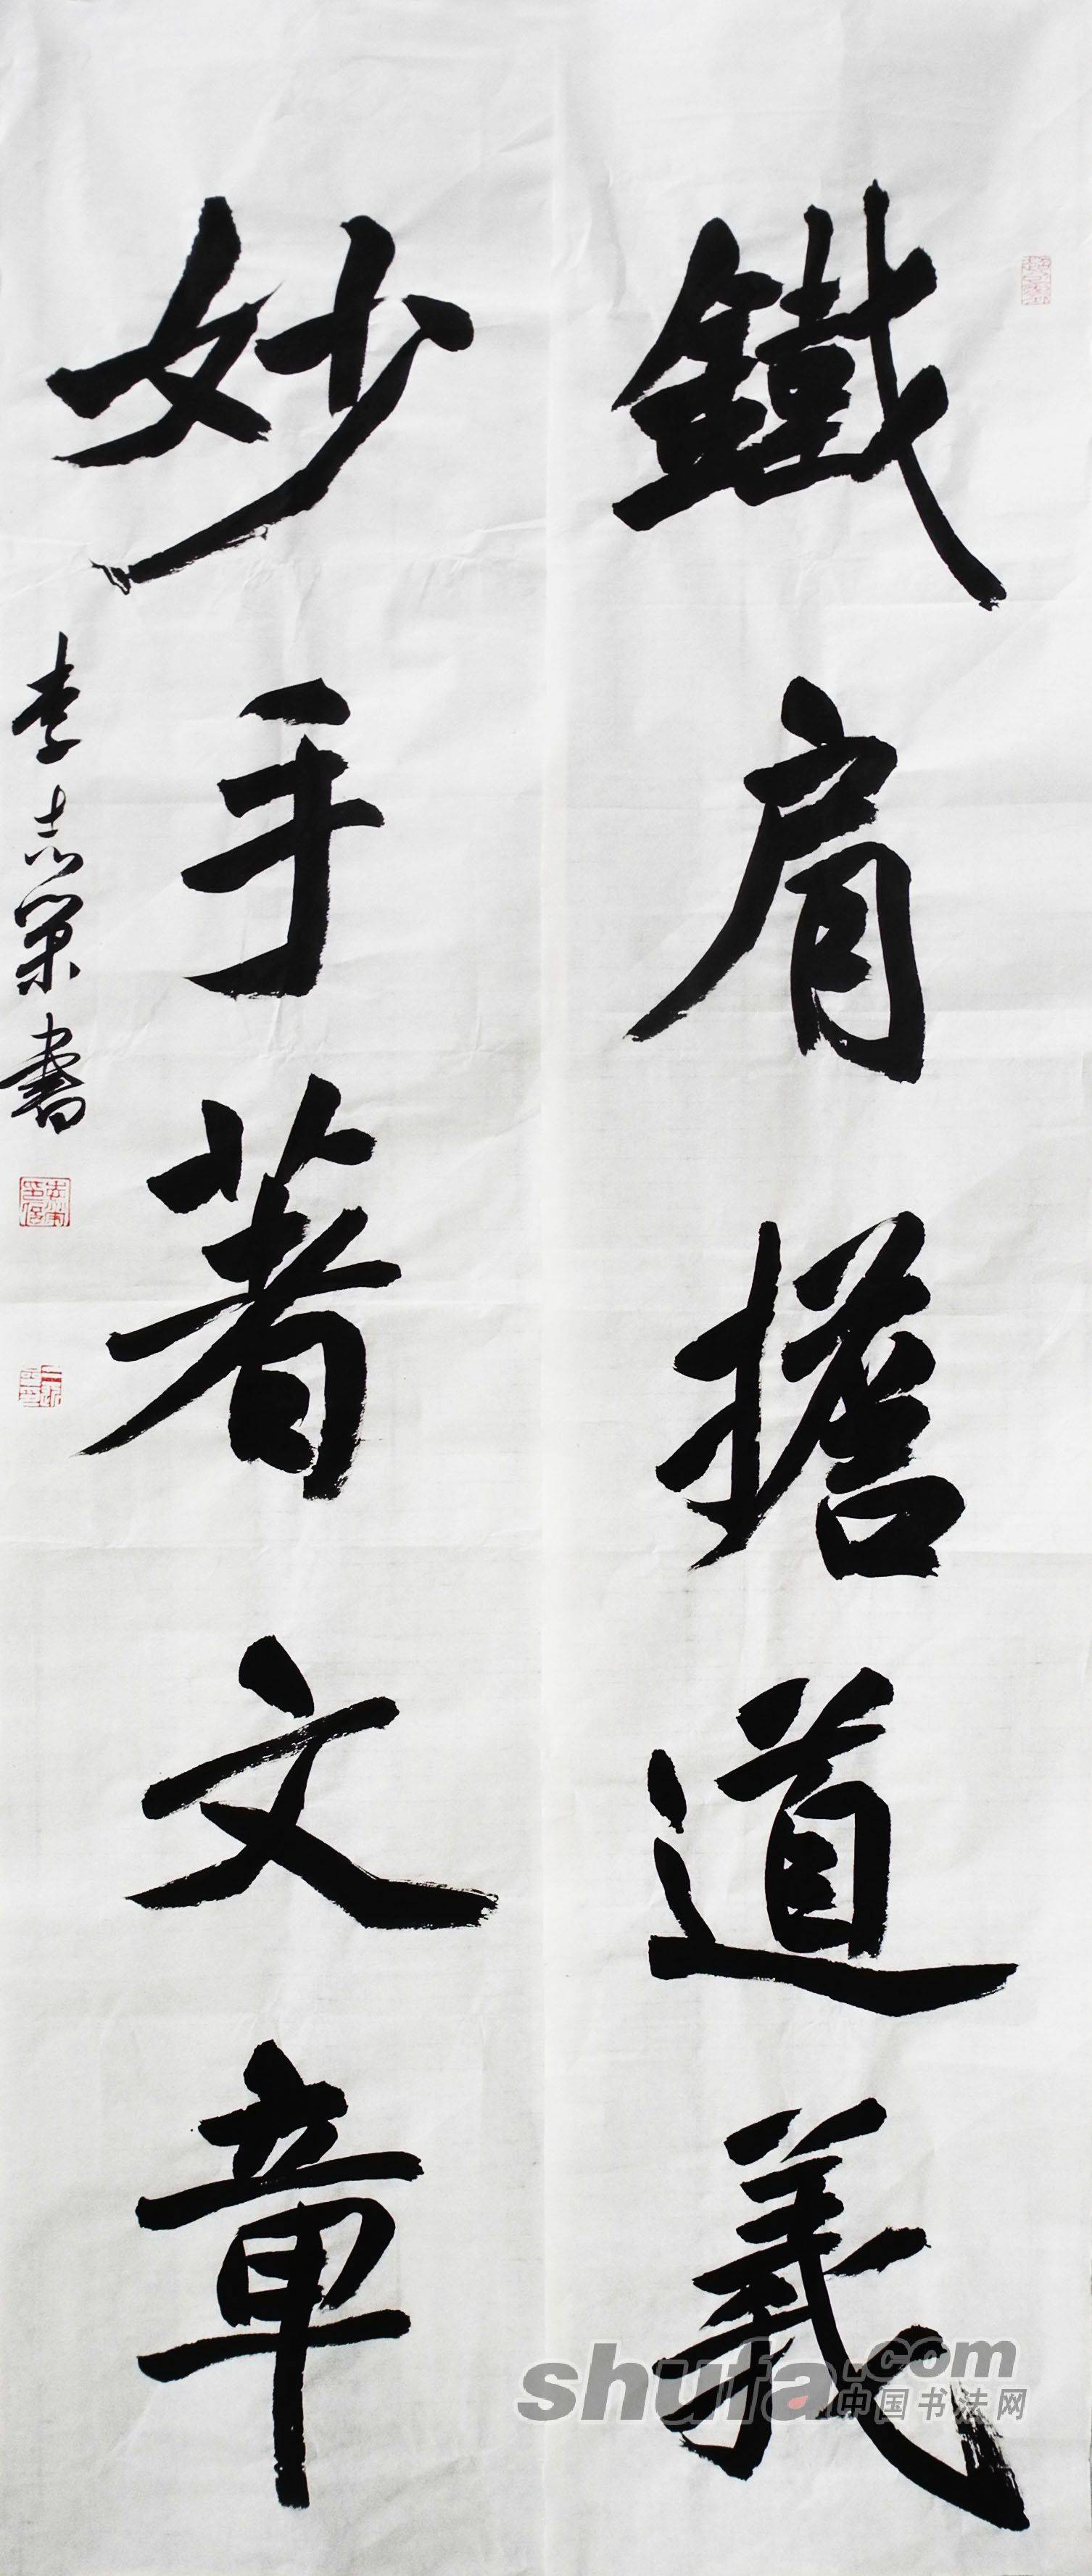 鐵肩擔道義
妙手著文章
李志榮書
shufa.com
中国书法网